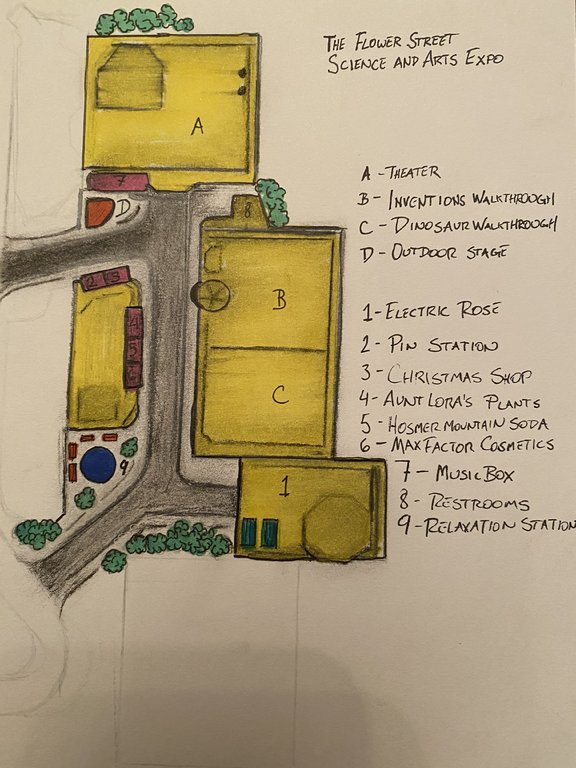 THE FLOWER STREET
SCIENCE AND ARTS EXPO
A - THEATER
B - INVENTIONS WALKTHROUGH
C - DINOSAUR WALKTHROUGH
D - OUTDOOR STAGE
1 - ELECTRIC ROSE
2 - PIN STATION
3 - CHRISTMAS SHOP
4 - AUNT LORA'S PLANTS
5 - HOSMER MOUNTAIN SODA
6 - MAX FACTOR COSMETICS
7 - MUSIC BOX
8 - RESTROOMS
9 - RELAXATION STATION
A
7
D
8
2 3
B
4
5
6
C
9
1